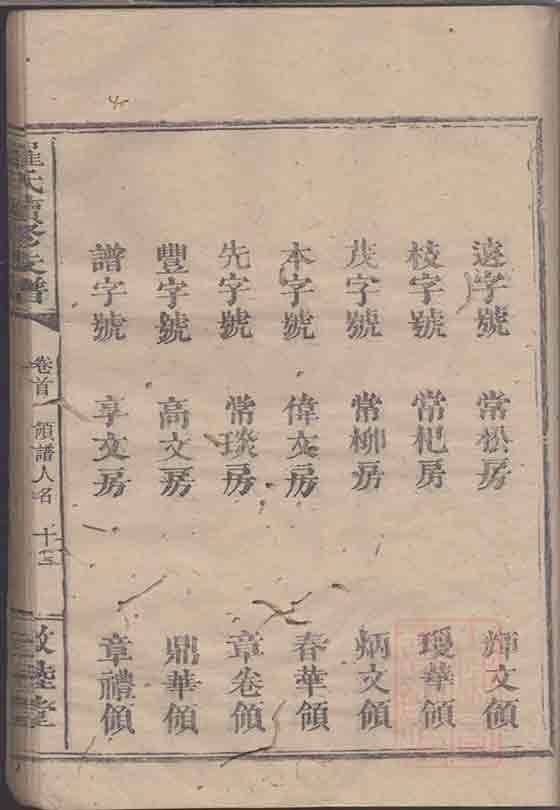 遠字號 常松房 輝文領
枝字號 常杞房 瓊華領
茂字號 常柳房 炳文領
本字號 偉文房 春華領
先字號 常琰房 章卷領
豐字號 高文房 鼎華領
譜字號 享文房 章禮領
羅氏續修支譜
卷首 領譜人名 十三
敦睦堂